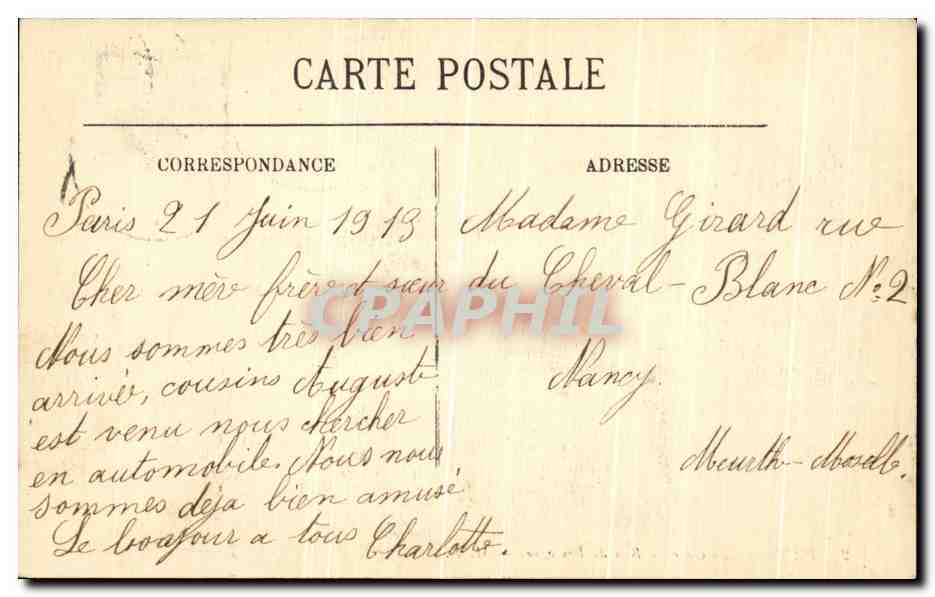 CARTE POSTALE
CORRESPONDANCE
Paris 21 Juin 1913
Cher mère frère et sœur
Nous sommes très bien
arrivée, cousins Auguste
est venu nous chercher
en automobile. Nous nous
sommes déja bien amusé
Le bonjour a tous Charlotte.
ADRESSE
Madame Girard rue
du Cheval-Blanc No 2
Nancy.
Meurth-Moselle.
CPAPHIL